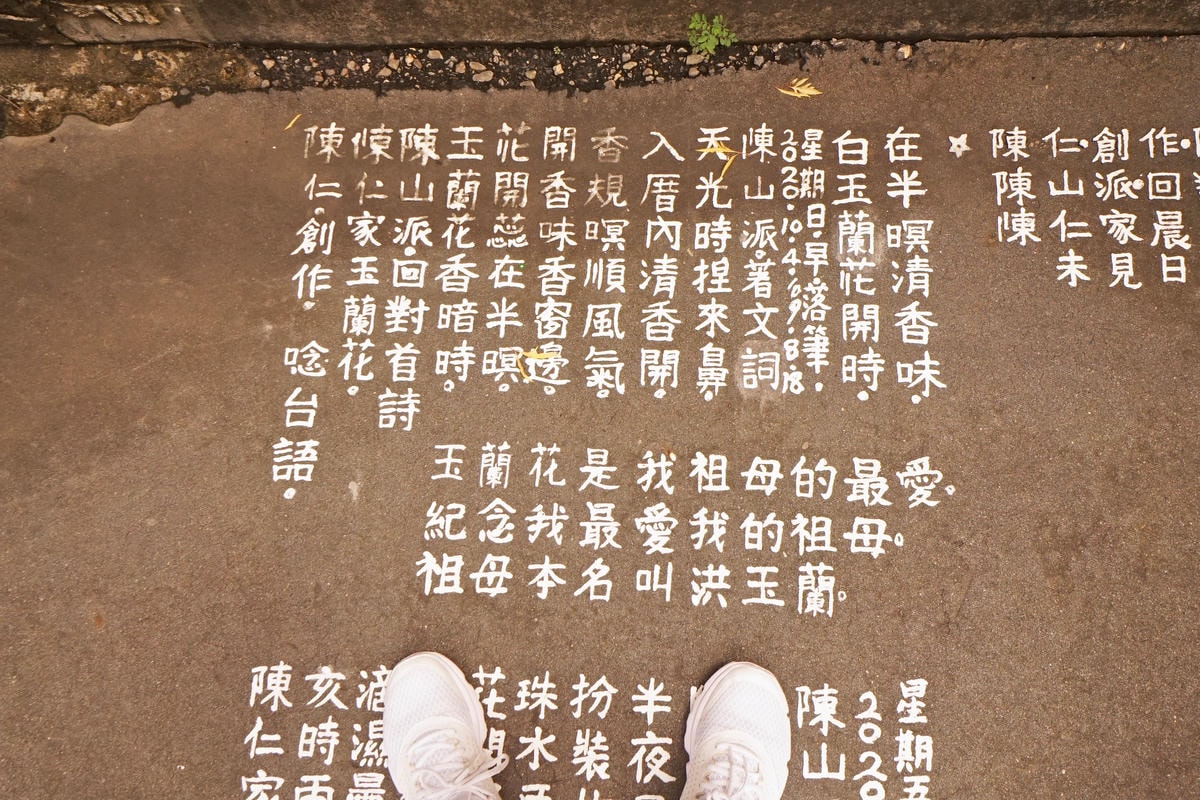 陳仁．創作．
陳山派．回
陳仁家晨
未見日
在半暝清香味。
白玉蘭花開時。
星期日．早．落筆．
2020．10．4．/69．8．18
陳山派．著文詞
天光時捏來鼻。
入厝內清香開。
香規暝順風氣。
開香味香窗邊。
花開蕊在半暝。
玉蘭花香暗時。
陳山派．回對首詩
陳仁家玉蘭花。
陳仁．創作．唸台語。
玉蘭花是我祖母的最愛。
紀念我最愛我的祖母。
祖母本名叫洪玉蘭。
星期五
2020
陳山
半夜
扮裝
珠水
花開
滴濕
亥時雨
陳仁家